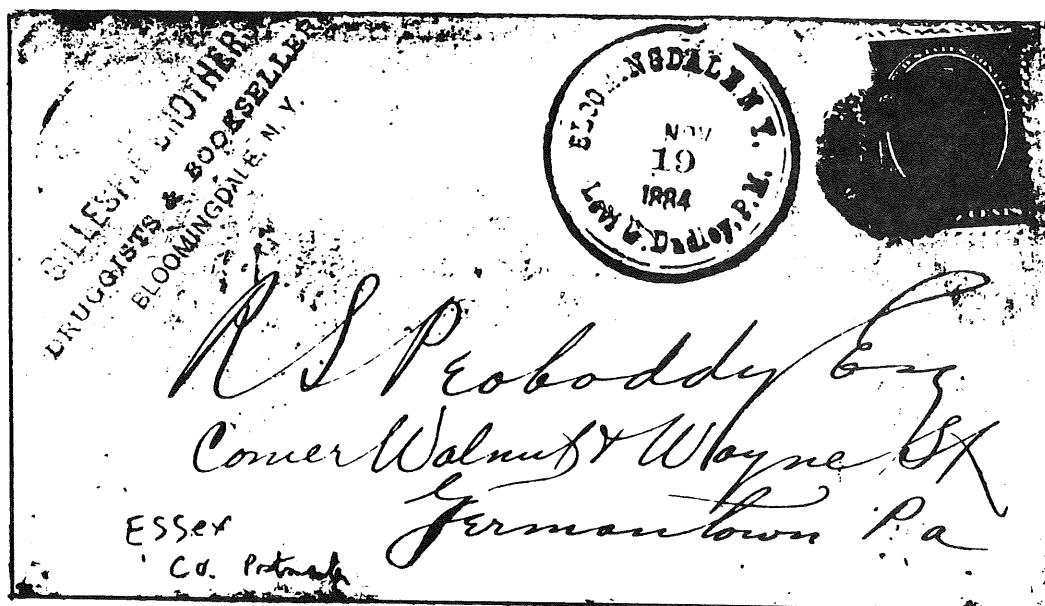 GILLESPIE BROTHERS
DRUGGISTS & BOOKSELLERS
BLOOMINGDALE, N. Y.
BLOOMINGDALE N.Y.
NOV
19
1884
Levi G. Dudley, P.M.
CENTS
R S Peoboddy Esq.
Corner Walnut & Wayne St
Germantown Pa
Essex
Co. Postmaster